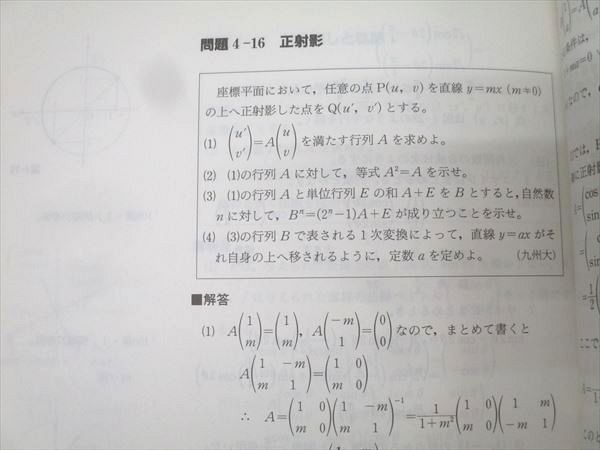 問題 4-16 正射影
座標平面において，任意の点 P(u, v) を直線 y=mx (m≠0)
の上へ正射影した点を Q(u′, v′) とする。
(1) (u′ v′)=A(u v) を満たす行列 A を求めよ。
(2) (1)の行列 A に対して，等式 A²=A を示せ。
(3) (1)の行列 A と単位行列 E の和 A+E を B とすると，自然数
n に対して，Bⁿ=(2ⁿ−1)A+E が成り立つことを示せ。
(4) (3)の行列 B で表される 1 次変換によって，直線 y=ax がそ
れ自身の上へ移されるように，定数 a を定めよ。 (九州大)
■解答
(1) A(1 m)=(1 m), A(−m 1)=(0 0) なので，まとめて書くと
A(1 −m m 1)=(1 0 m 0)
∴ A=(1 0 m 0)(1 −m m 1)⁻¹=1/(1+m²)(1 0 m 0)(1 m −m 1)